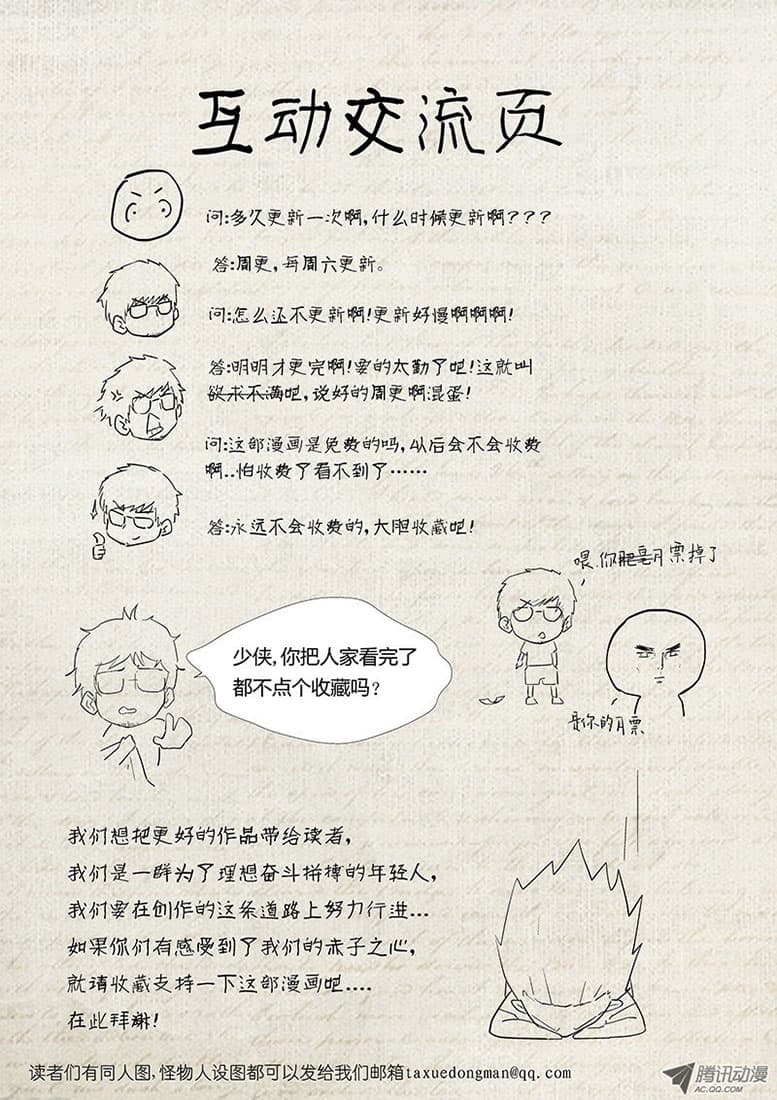 互动交流页
问:多久更新一次啊,什么时候更新啊???
答:周更,每周六更新。
问:怎么还不更新啊!更新好慢啊啊啊!
答:明明才更完啊!要的太勤了吧!这就叫
欲求不满吧,说好的周更啊混蛋!
问:这部漫画是免费的吗,从后会不会收费
啊..怕收费了看不到了……
答:永远不会收费的,大胆收藏吧!
喂.你肥皂月票掉了
少侠,你把人家看完了
都不点个收藏吗?
是你的月票
我们想把更好的作品带给读者,
我们是一群为了理想奋斗拼搏的年轻人,
我们要在创作的这条道路上努力行进...
如果你们有感受到了我们的赤子之心,
就请收藏支持一下这部漫画吧....
在此拜谢!
读者们有同人图,怪物人设图都可以发给我们邮箱taxuedongman@qq.com
腾讯动漫
AC.QQ.COM